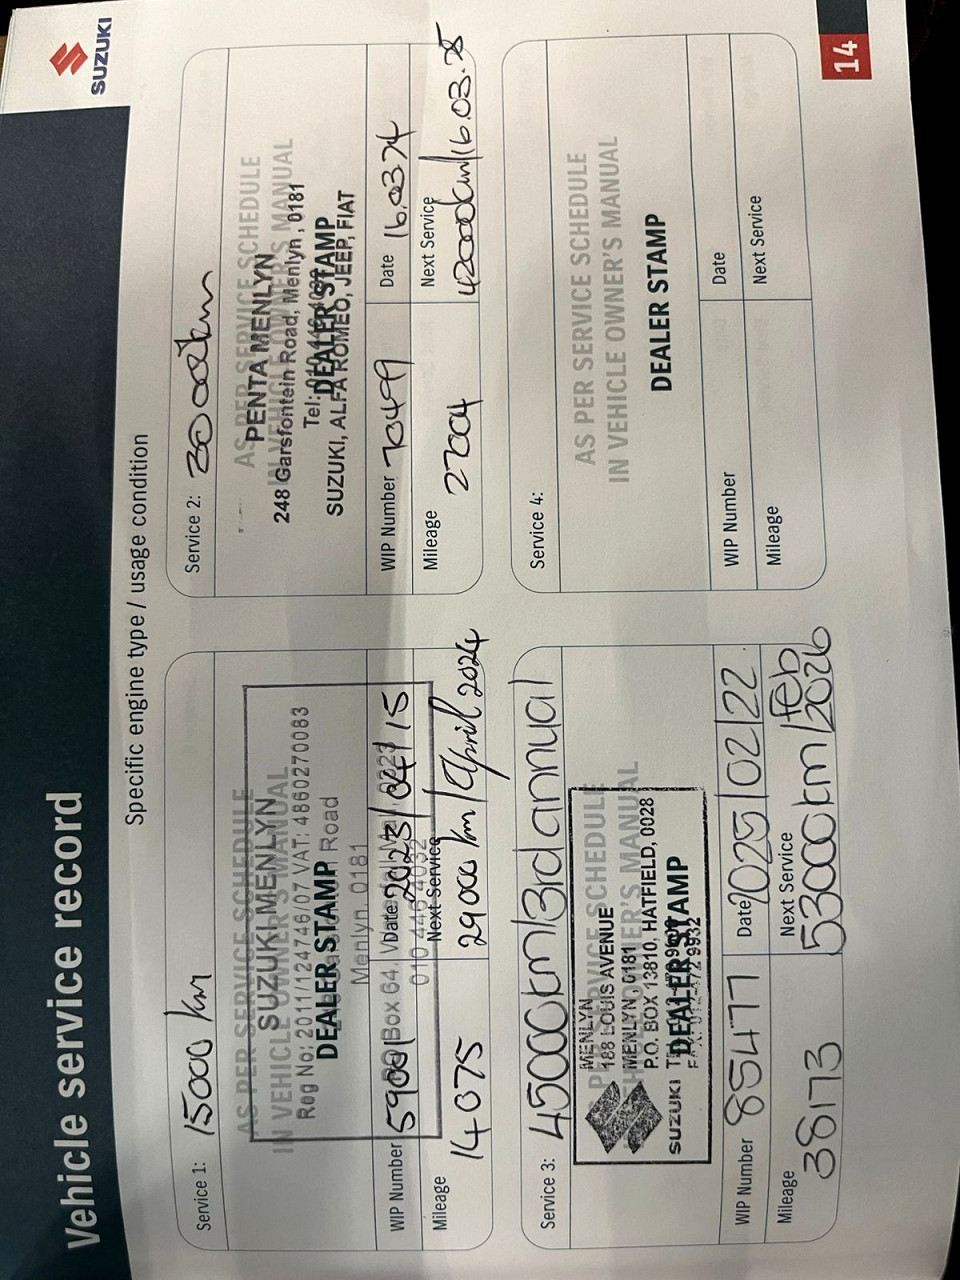 SUZUKI
Vehicle service record
Specific engine type / usage condition
Service 1: 15000 km
AS PER SERVICE SCHEDULE
SUZUKI MENLYN
IN VEHICLE OWNER'S MANUAL
Reg No: 2011/124746/07 VAT: 4860270083
DEALER STAMP
Road
Menlyn, 0181
Box 64,
WIP Number
Date 2023/04/15
010 446 4032
Mileage 14075
Next Service 29000 km/April 2024
Service 2: 30000km
AS PER SERVICE SCHEDULE
PENTA MENLYN
IN VEHICLE OWNER'S MANUAL
248 Garsfontein Road, Menlyn, 0181
Tel:
DEALER STAMP
SUZUKI, ALFA ROMEO, JEEP, FIAT
WIP Number 70499
Date 16.03.24
Mileage 27004
Next Service 42000km/16.03.25
Service 3: 45000km/3rd annual
AS PER SERVICE SCHEDULE
IN VEHICLE OWNER'S MANUAL
MENLYN
188 LOUIS AVENUE
MENLYN, 0181
P.O. BOX 13810, HATFIELD, 0028
DEALER STAMP
SUZUKI
WIP Number 85477
Date 2025/02/22
Mileage 38173
Next Service 53000km/feb 2026
Service 4:
AS PER SERVICE SCHEDULE
IN VEHICLE OWNER'S MANUAL
DEALER STAMP
WIP Number
Date
Mileage
Next Service
14